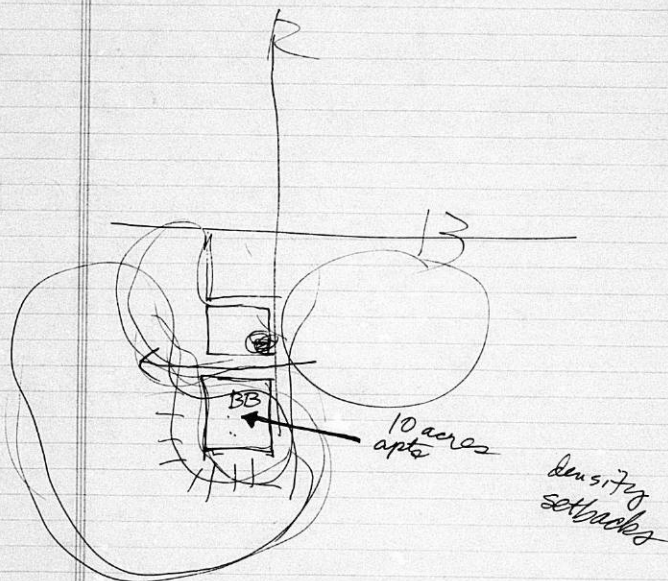 R
B
BB
10 acres
apts
density
setbacks